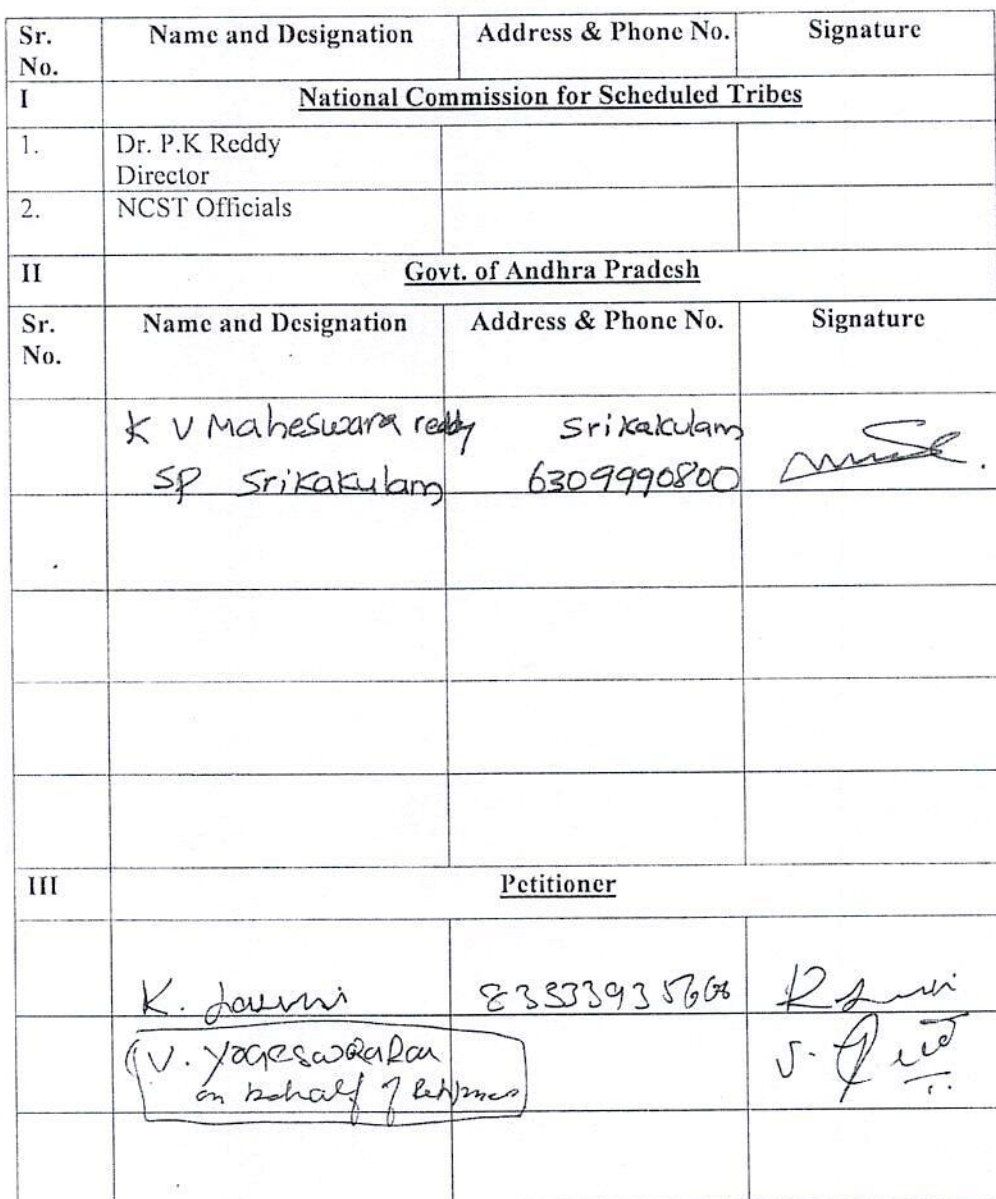 Sr. No. Name and Designation Address & Phone No. Signature
I National Commission for Scheduled Tribes
1. Dr. P.K Reddy
Director
2. NCST Officials
II Govt. of Andhra Pradesh
Sr. No. Name and Designation Address & Phone No. Signature
K V Maheswara reddy Srikakulam
SP Srikakulam 6309990800
III Petitioner
K.
V. Yogeswara
on behalf of